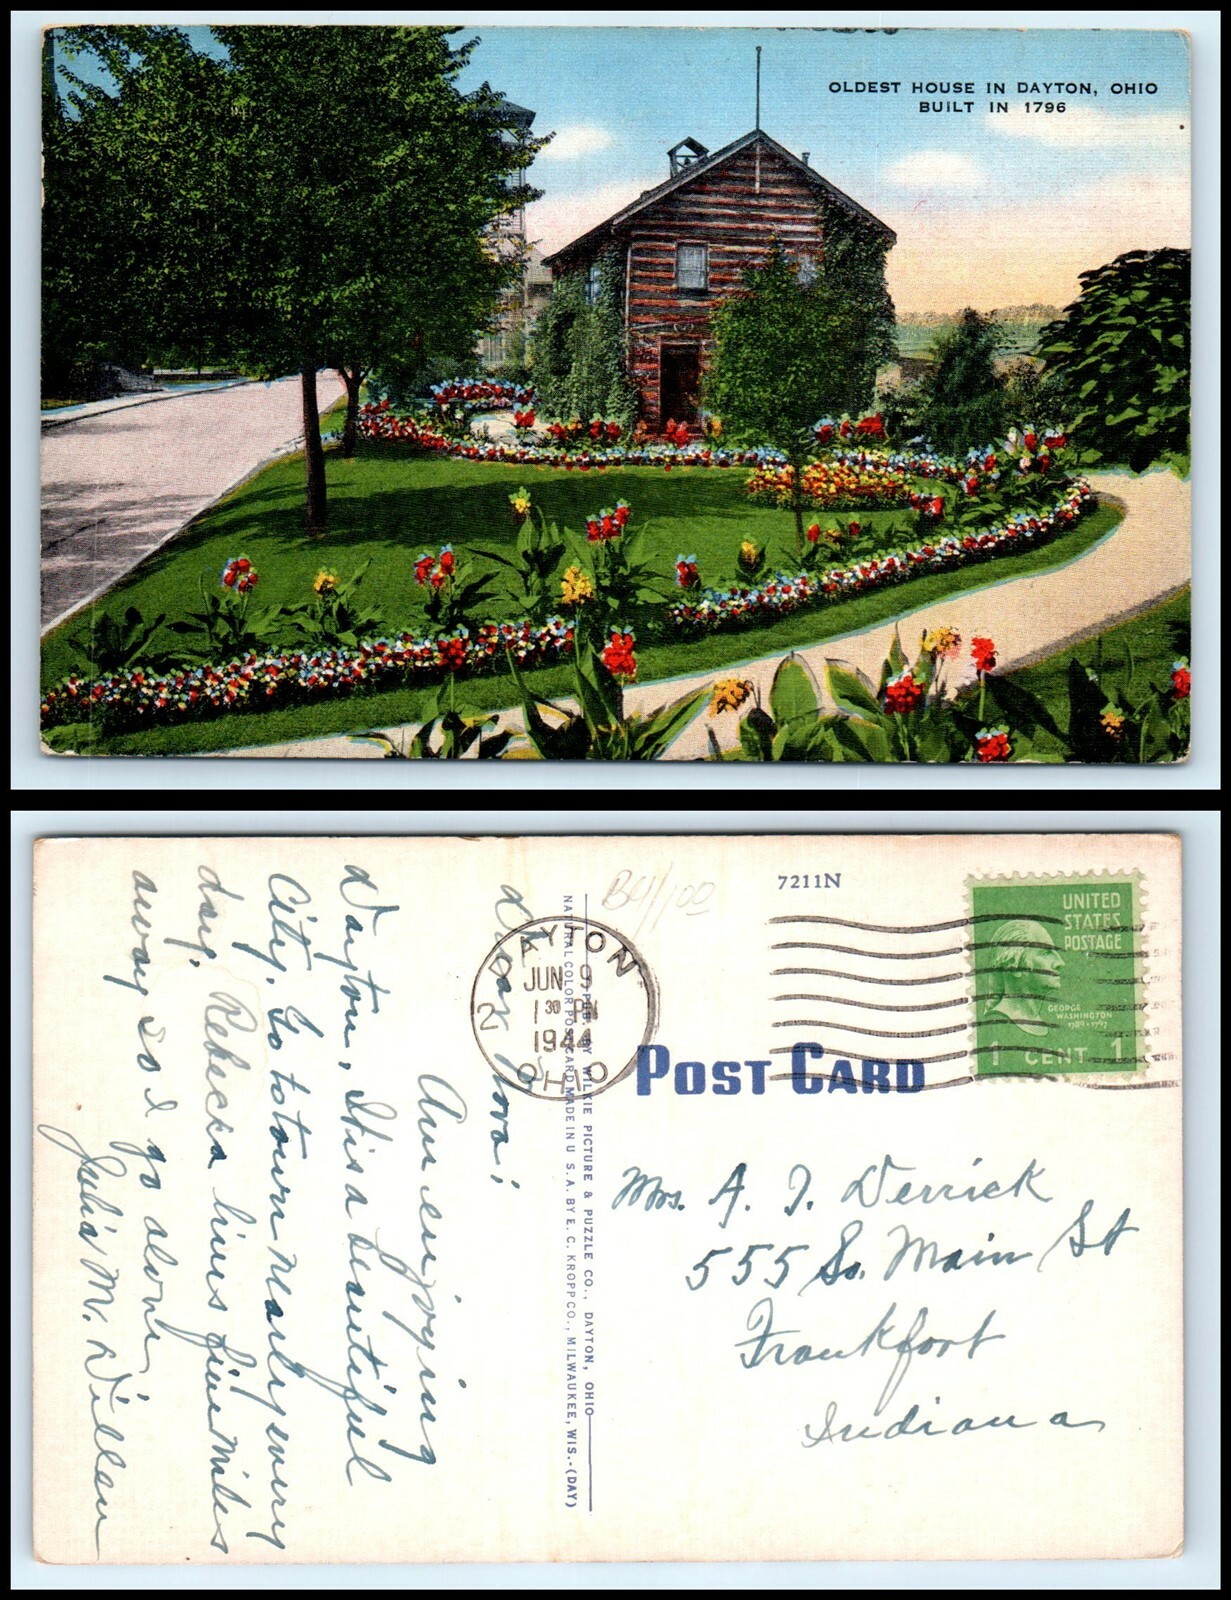 OLDEST HOUSE IN DAYTON, OHIO
BUILT IN 1796
7211N
B4/100
DAYTON
2
JUN 9
1 30 PM
1944
OHIO
UNITED
STATES
POSTAGE
GEORGE
WASHINGTON
1789-1797
1 CENT 1
POST CARD
PUB. BY WILKIE PICTURE & PUZZLE CO., DAYTON, OHIO
NATURAL COLOR POST CARD MADE IN U. S. A. BY E. C. KROPP CO., MILWAUKEE, WIS.-(DAY)
Dear Nora:
Am enjoying
Dayton, It is a beautiful
City. Go to town nearly every
day. Rebecka lives five miles
away so I go alone.
Julia M. Dillen
Mrs. A. J. Derrick
555 So. Main St
Frankfort
Indiana